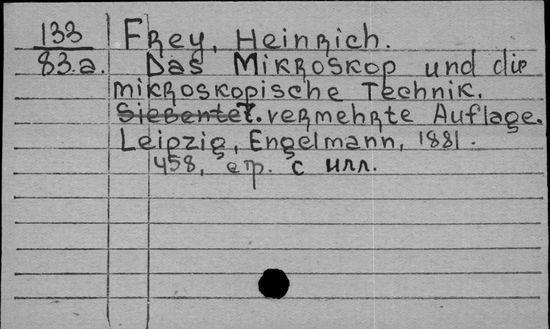 133 Frey, Heinrich.
83.a. Das Mikroskop und die
mikroskopische Technik.
Siebente 7. vermehrte Auflage.
Leipzig, Engelmann, 1881.
458, стр. с илл.